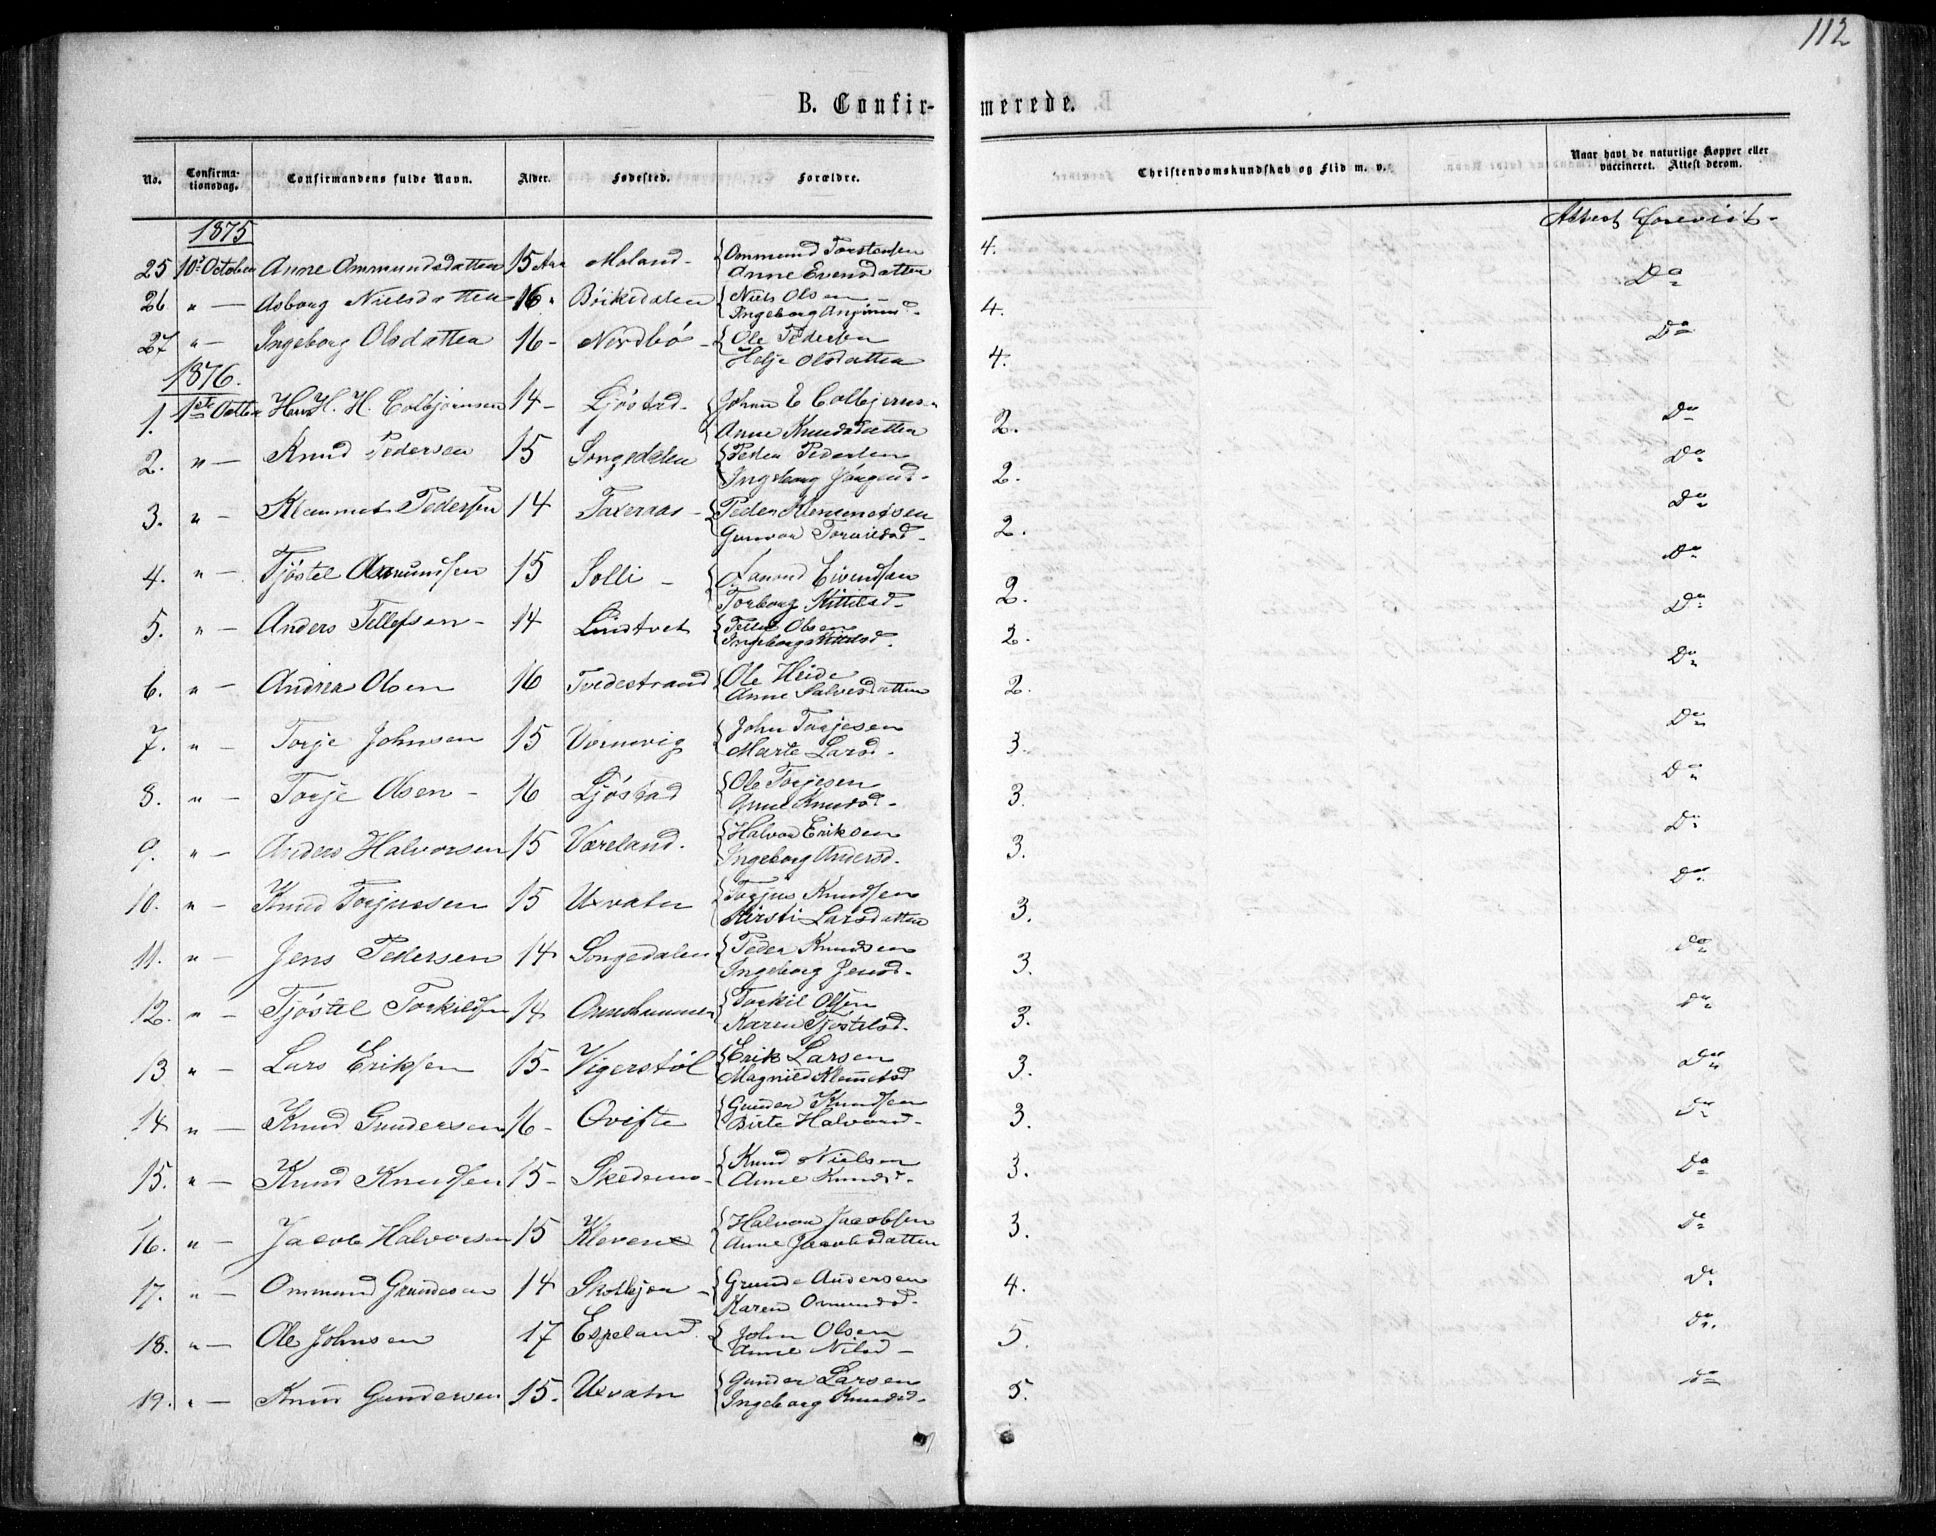 112
B. Confir- merede.
No. Confirma-tionsdag. Confirmandens fulde Navn. Alder. Fødested. Forældre. Christendomskundskab og Flid m. v. Naar havt de naturlige Kopper eller vaccineret. Attest derom.
1875 Attest forevist -
25 10de October Anne Ommundsdatter 15 Aar Moland - Ommund Torstensen 4.
Anne Evensdatter
26 " — Asborg Nielsdatter 16 " Böikedalen Niels Olsen - 4. Do
Ingeborg
27 " — Ingeborg Olsdatter 16 - Nordbö - Ole Pedersen 4. Do
Helje Olsdatter
1876.
1. 1ste Octber Hans H. H. Colbjörnsen 14 - Ljöstad - Johan E Colbjörns- 2. Do
Anne Knudsdatter
2. " — Knud Pedersen 15 Songedalen Peder Pedersen 2. Do
Ingeborg Jörgend -
3. " — Klemmet Pedersen 14 Taxeraas - Peder Klemmetsen 2. Do
Gunvor Torvildsd -
4. " — Tjöstel Aamundsen 15 Solli - Aamund Eivendsen 2. Do
Torborg Kittilsd -
5. " — Anders Tellefsen - 14 Lindtvet Tellef Olsen 2. Do
Ingeborg Kittilsd.
6. " — Andrea Olsen 16 Tvedestrand Ole Heide 2. Do
Anne Salvesdatter
7. " — Torje Johnsen 15 Vormevig John Torjesen 3. Do
Marte Larsd -
8. " — Torje Olsen - 16 Ljöstad Ole Torjesen 3. Do
Anne Knudsd -
9. " — Anders Halvorsen 15 Væreland. Halvor Eriksen 3. Do
Ingeborg Andersd.
10. " — Knud Torjussen 15 Uxvatn Torjus Knudsen 3. Do
Kirsti Larsdatter
11. " — Jens Pedersen 14 Songedalen Peder Knudsen 3. Do
Ingeborg Jensd -
12. " — Tjöstel Torkildsen 14 Ommehammer Torkil Olsen 3. Do
Karen Tjöstelsd -
13 " — Lars Eriksen 15 - Vigerstöl Erik Larsen 3. Do
Magnild Klemetsd
14 " — Knud Gundersen 16 - Ovifte Gunder Knudsen 3. Do
Birte Halvorsd -
15. " — Knud Knudsen 15 - Skedemo - Knud Nielsen 3. Do
Anne Knudsd -
16. " — Jacob Halvorsen 15 Klevene Halvor Jacobsen 3. Do
Anne Jacobsdatter
17. " — Ommund Grundesen 14 Skotbjon - Grunde Andersen 4. Do
Karen Omundsd -
18. " — Ole Johnsen 17 Espeland John Olsen 5. Do.
Anne Nilsd -
19. " — Knud Gundersen 15 - Uxvatn Gunder Larsen 5. Do
Ingeborg Knudsd -